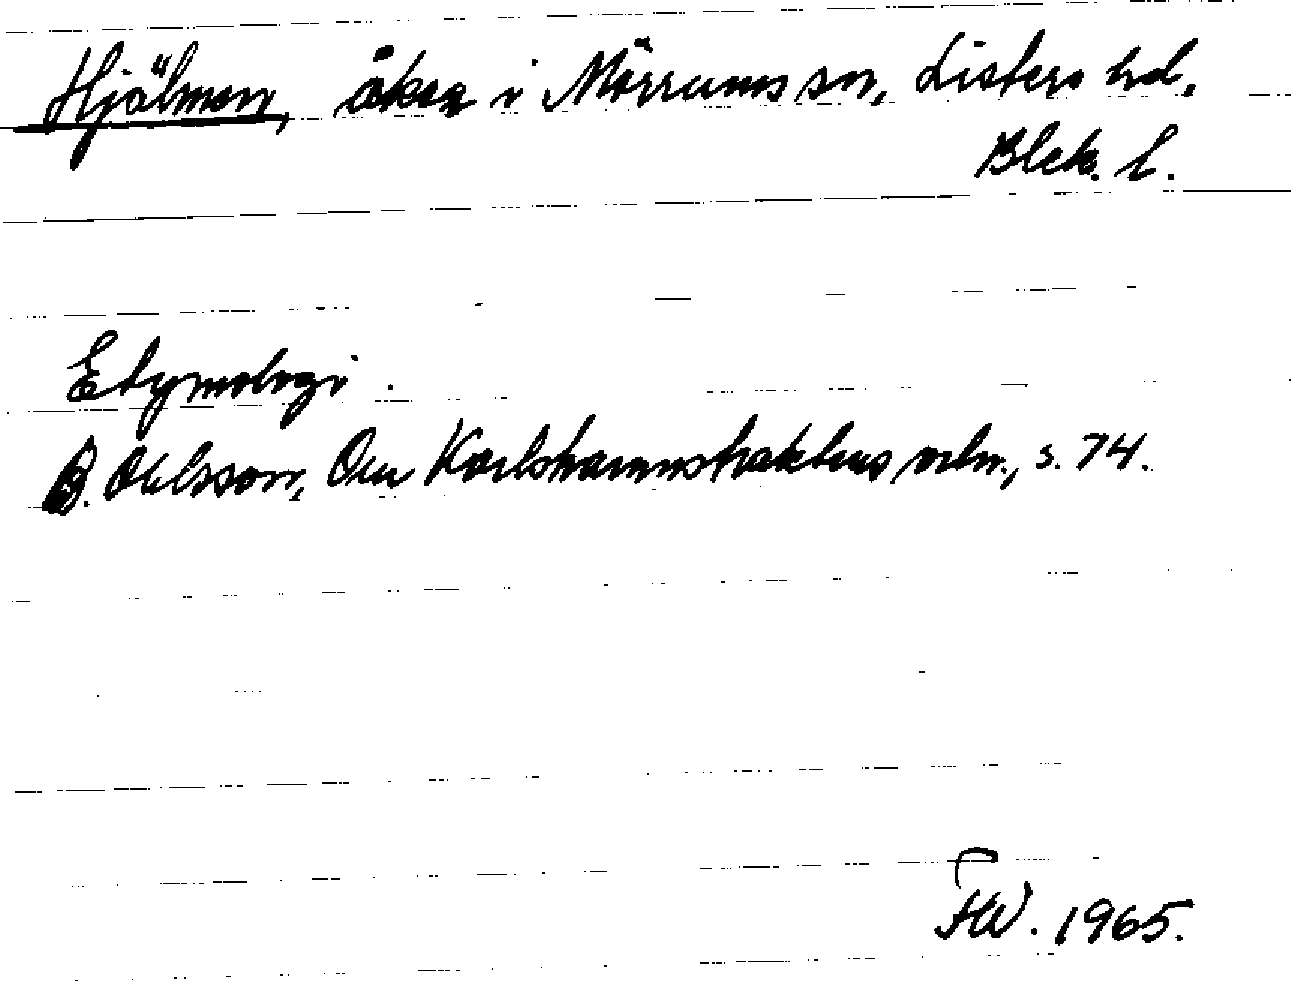 Hjälmen, åker i Mörrums sn, Listers hd,
Blek. l.
Etymologi.
B. Ohlsson, Om Karlshamnstraktens orln., s. 74.
FW. 1965.